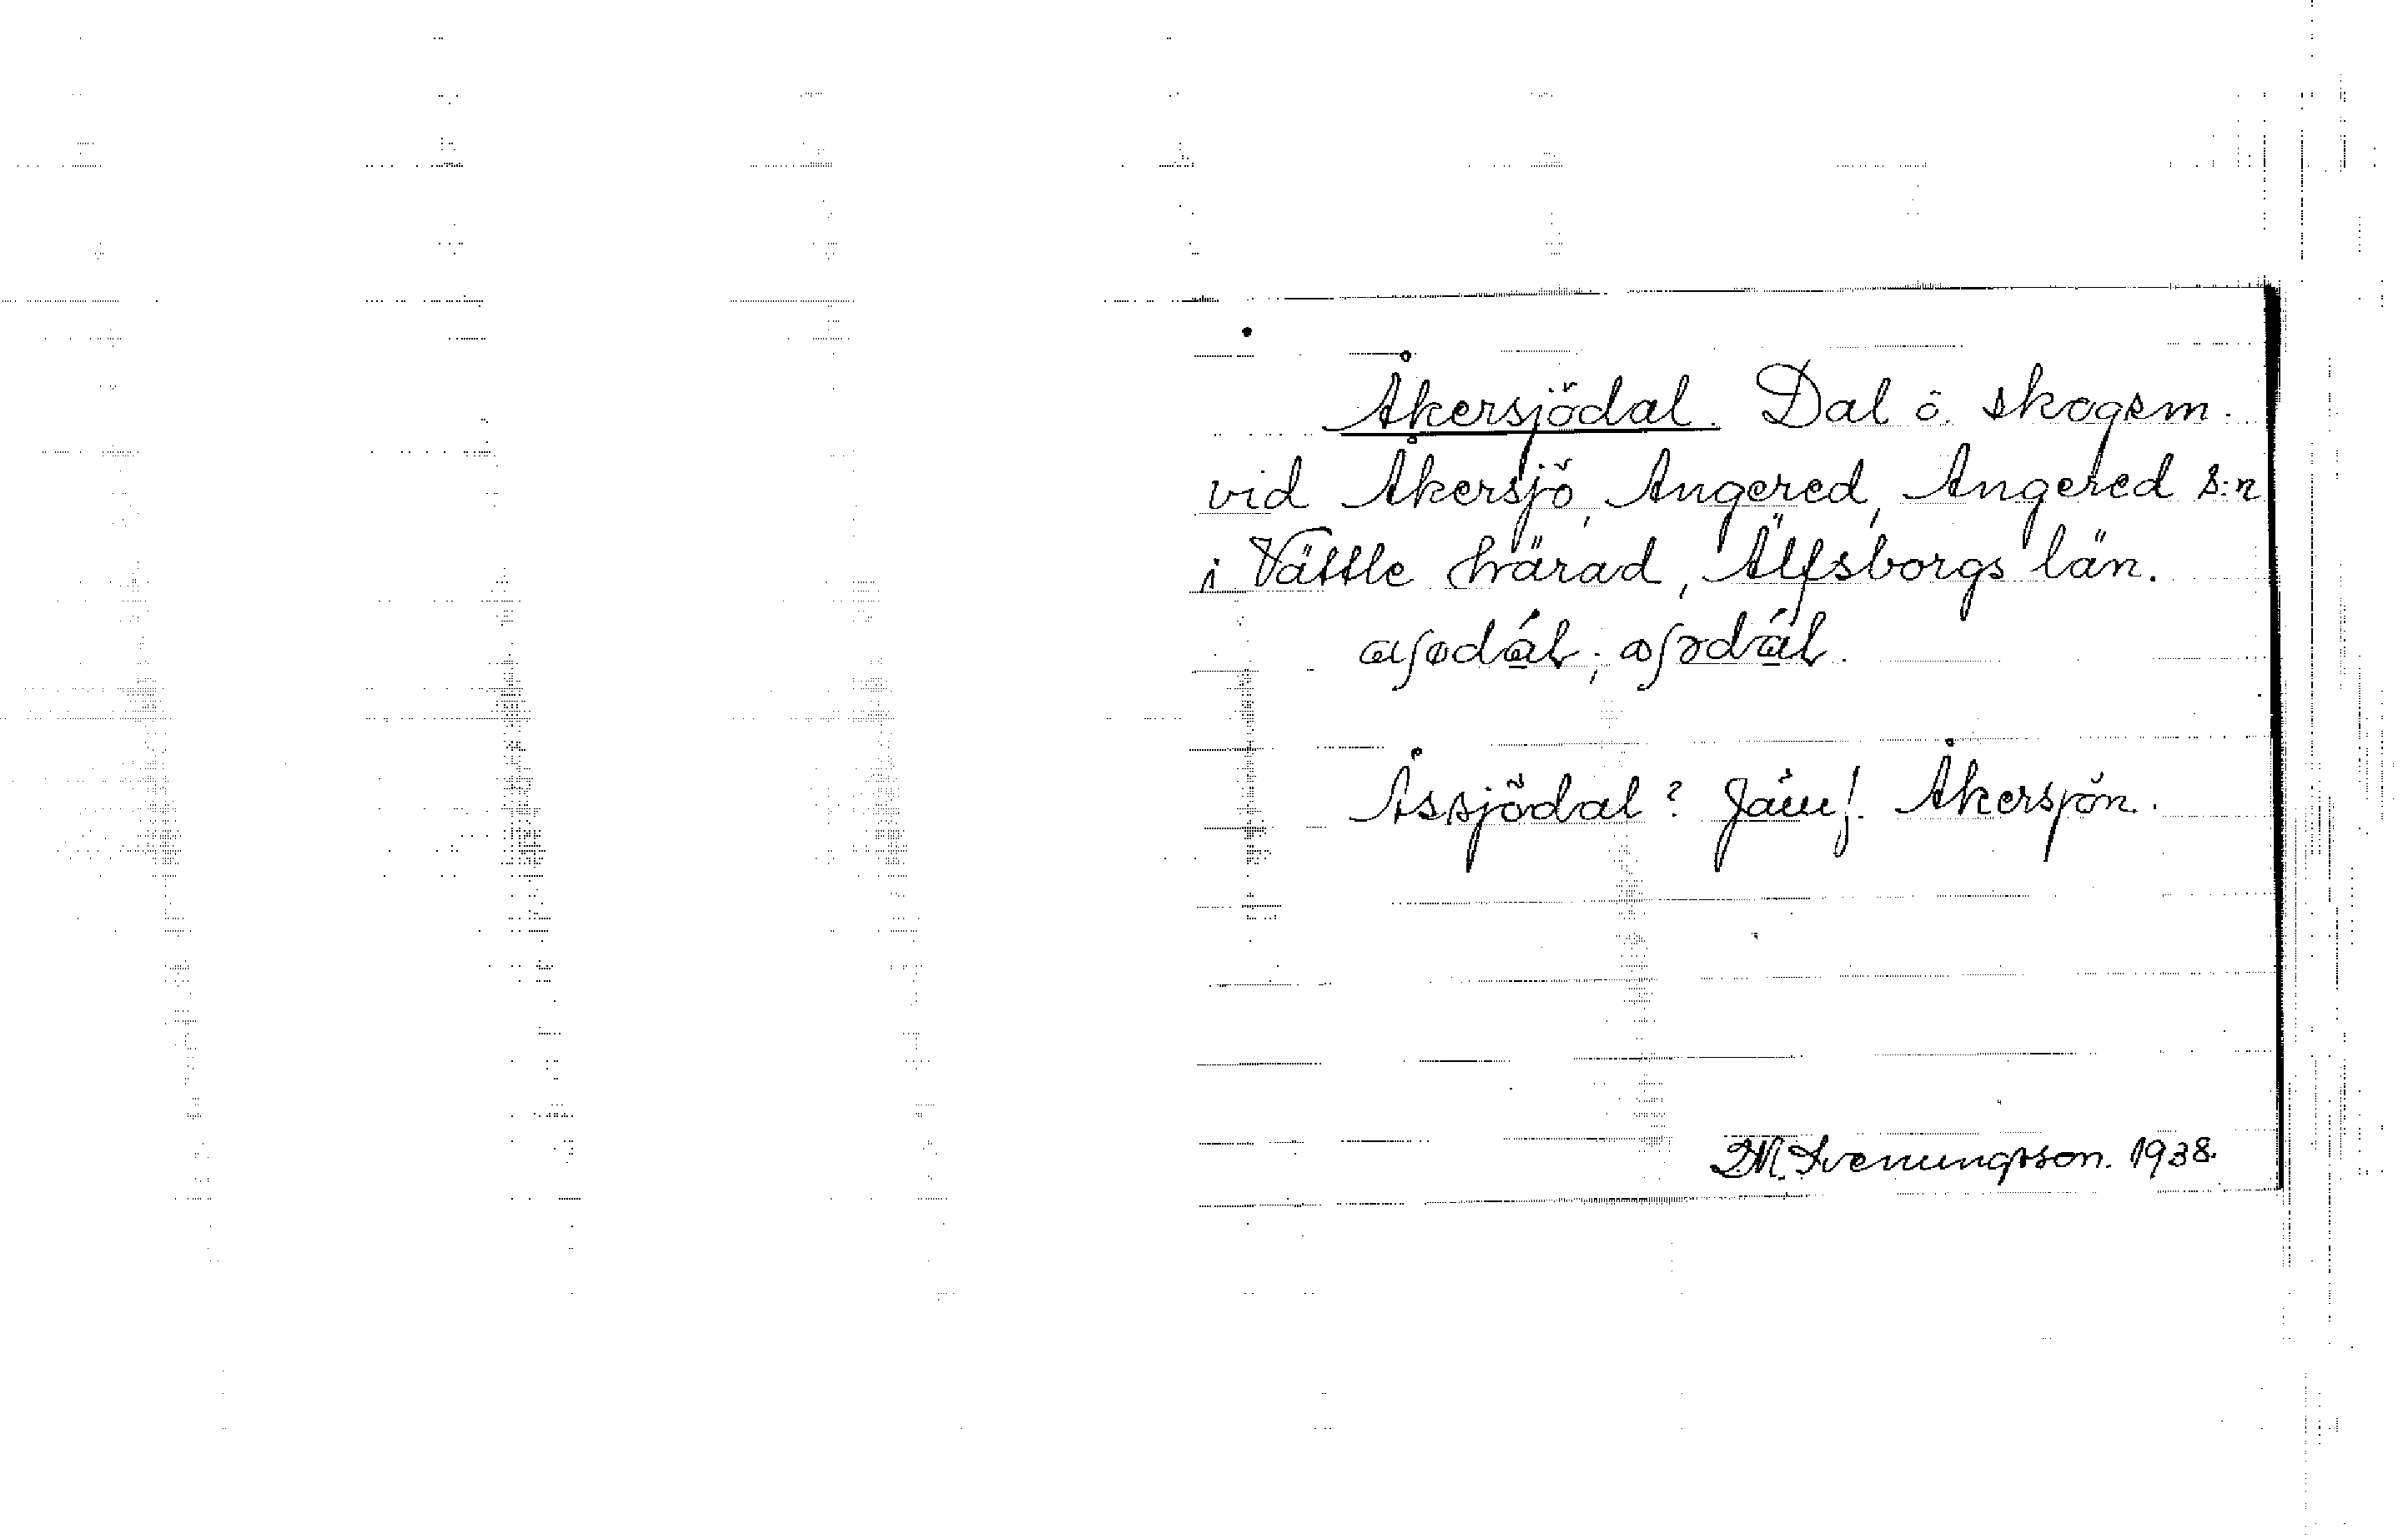 Åkersjödal. Dal o. skogsm.
vid Åkersjö, Angered, Angered s:n
i Vättle härad, Älfsborgs län.
Åssjödal? Jäm! Åkersjön.
D.M. Svenungsson. 1938.